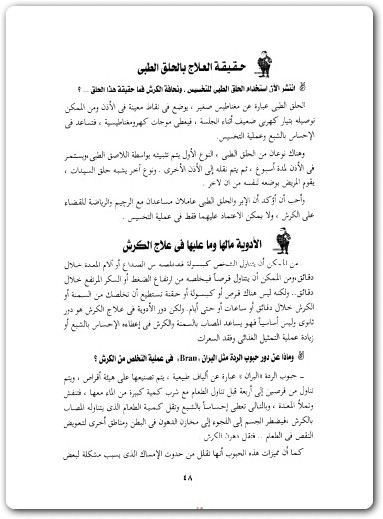 حقيقة العلاج بالحلق الطبى
انتشر الآن استخدام الحلق الطبى للتخسيس ، ونحافة الكرش فما حقيقة هذا الحلق ... ؟
الحلق الطبى عبارة عن مغناطيس صغير ، يوضع فى نقاط معينة فى الأذن ومن الممكن
توصيله بتيار كهربى ضعيف أثناء الجلسة ، فيعطى موجات كهرومغناطيسية ، فتساعد فى
الإحساس بالشبع وعملية التخسيس.
وهناك نوعان من الحلق الطبى ، النوع الأول يتم تثبيته بواسطة اللاصق الطبى ،ويستمر
فى الأذن لمدة أسبوع ، ثم يتم نقله إلى الأذن الأخرى . ونوع آخر يشبه حلق السيدات ،
يقوم المريض بوضعه لنفسه من آن لآخر .
وأحب أن أؤكد أن الإبر والحلق الطبى عاملان مساعدان مع الرجيم والرياضة للقضاء
على الكرش ، ولا يمكن الاعتماد عليهما فقط فى عملية التخسيس .
الأدوية مالها وما عليها فى علاج الكرش
من الممكن أن يتناول الشخص كبسولة من الصداع أو آلام المعدة خلال
دقائق،ومن الممكن أن يتناول قرصاً فيخلصه من ارتفاع الضغط أو السكر المرتفع خلال
دقائق .. ولكنه ليس هناك قرص أو كبسولة أو حقنة تستطيع أن تخلصك من السمنة أو
الكرش خلال دقائق أو ساعات أو حتى أيام. ولكن دور الأدوية فى علاج الكرش هو دور
ثانوى وليس أساسياً فهو يساعد المصاب بالسمنة والكرش فى إعطاءه الإحساس بالشبع أو
زيادة عملية التمثيل الغذائى وفقد السعرات
وماذا عن دور حبوب الردة مثل البران «Bran» فى عملية التخلص من الكرش ؟
ـ حبوب الردة «البران » عبارة عن ألياف طبيعية ، يتم تصنيعها على هيئة أقراص ، ويتم
تناول من قرصين إلى أربعة قبل تناول الطعام مع شرب كمية كبيرة من الماء معها ، فتنفش
وتملأ المعدة ، وبالتالى تعطى إحساساً بالشبع وتقل كمية الطعام الذى يتناوله المصاب
بالكرش ،فيضطر الجسم إلى اللجوء إلى مخازن الدهون فى البطن ومناطق أخرى لتعويض
النقص فى الطعام .. فتقل دهون الكرش
كما أن مميزات هذه الحبوب أنها تقلل من حدوث الإمساك الذى يسبب مشكلة لبعض
٤٨